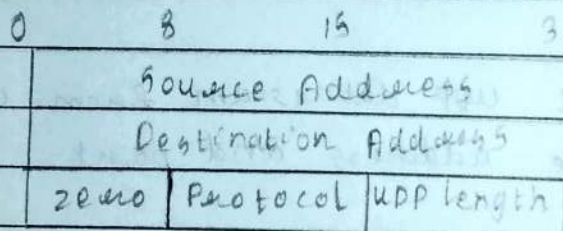 0 8 15 3
Source Address
Destination Address
zero Protocol UDP length